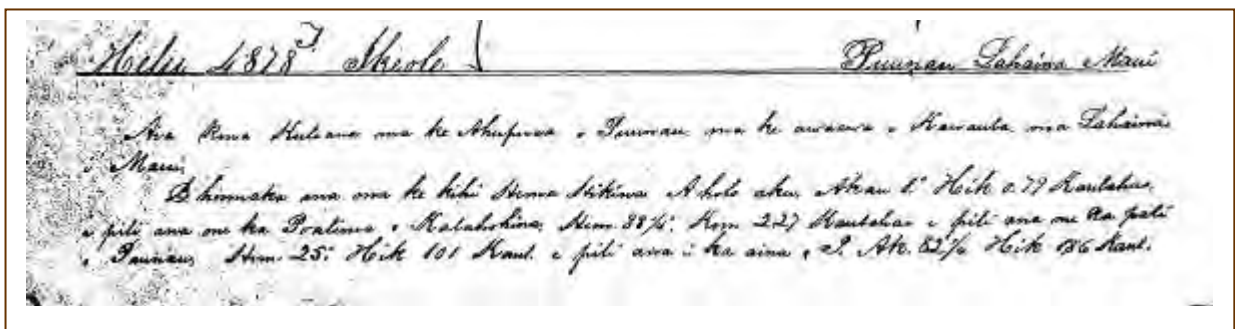 Helu 4878 J Ikeole Puunau Lahaina Maui
Ara Kuleana ma ke Ahupuaa o Puunau ma ke awawa o Kawaula ma Lahaina
i Maui.
E hoomaka ana ma ke kihi Hema Hikina A holo aku Akau 1° Hik 0.79 Kaulahao,
e pili ana me ka o Kalahokina, Hem. 88 1/4° Kom 2.27 Kaulahao e pili ana me ka pali
o Puunau, Hem. 25° Hik 101 Kaul. e pili ana i ka aina o Ak. 82 1/2 Hik 186 Kaul.